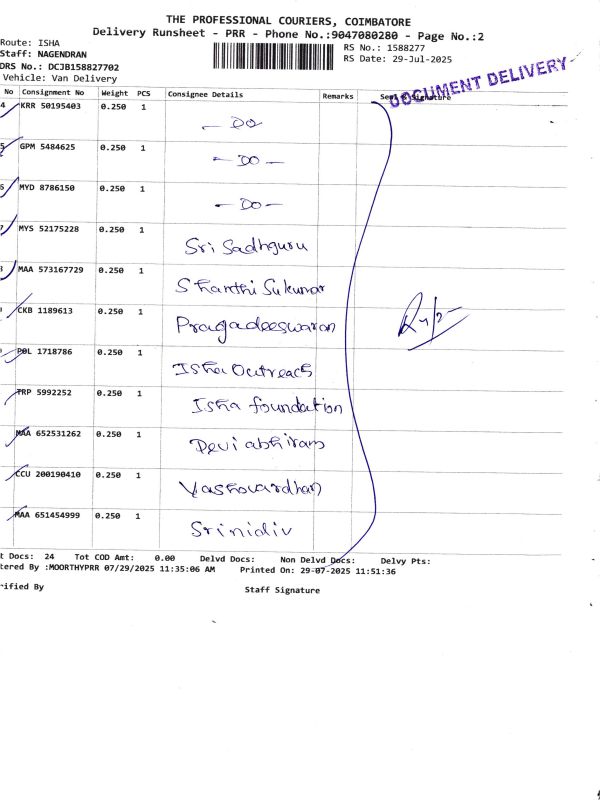 THE PROFESSIONAL COURIERS, COIMBATORE
Delivery Runsheet - PRR - Phone No.:9047080280 - Page No.:2
Route: ISHA
Staff: NAGENDRAN
DRS No.: DCJB158827702
Vehicle: Van Delivery
RS No.: 1588277
RS Date: 29-Jul-2025
DOCUMENT DELIVERY
No Consignment No Weight PCS Consignee Details Remarks Seal & Signature
4 KRR 50195403 0.250 1 — DO
5 GPM 5484625 0.250 1 — DO —
6 MYD 8786150 0.250 1 — DO —
7 MYS 52175228 0.250 1 Sri Sadhguru
MAA 573167729 0.250 1 Shanthi Sukumar
CKB 1189613 0.250 1 Pragadeeswaran
POL 1718786 0.250 1 Isha Outreach
TRP 5992252 0.250 1 Isha foundation
MAA 652531262 0.250 1 Devi abhiram
CCU 200190410 0.250 1 Yashovardhan
MAA 651454999 0.250 1 Srinidiv
t Docs: 24 Tot COD Amt: 0.00 Delvd Docs: Non Delvd Docs: Delvy Pts:
tered By :MOORTHYPRR 07/29/2025 11:35:06 AM Printed On: 29-07-2025 11:51:36
rified By Staff Signature